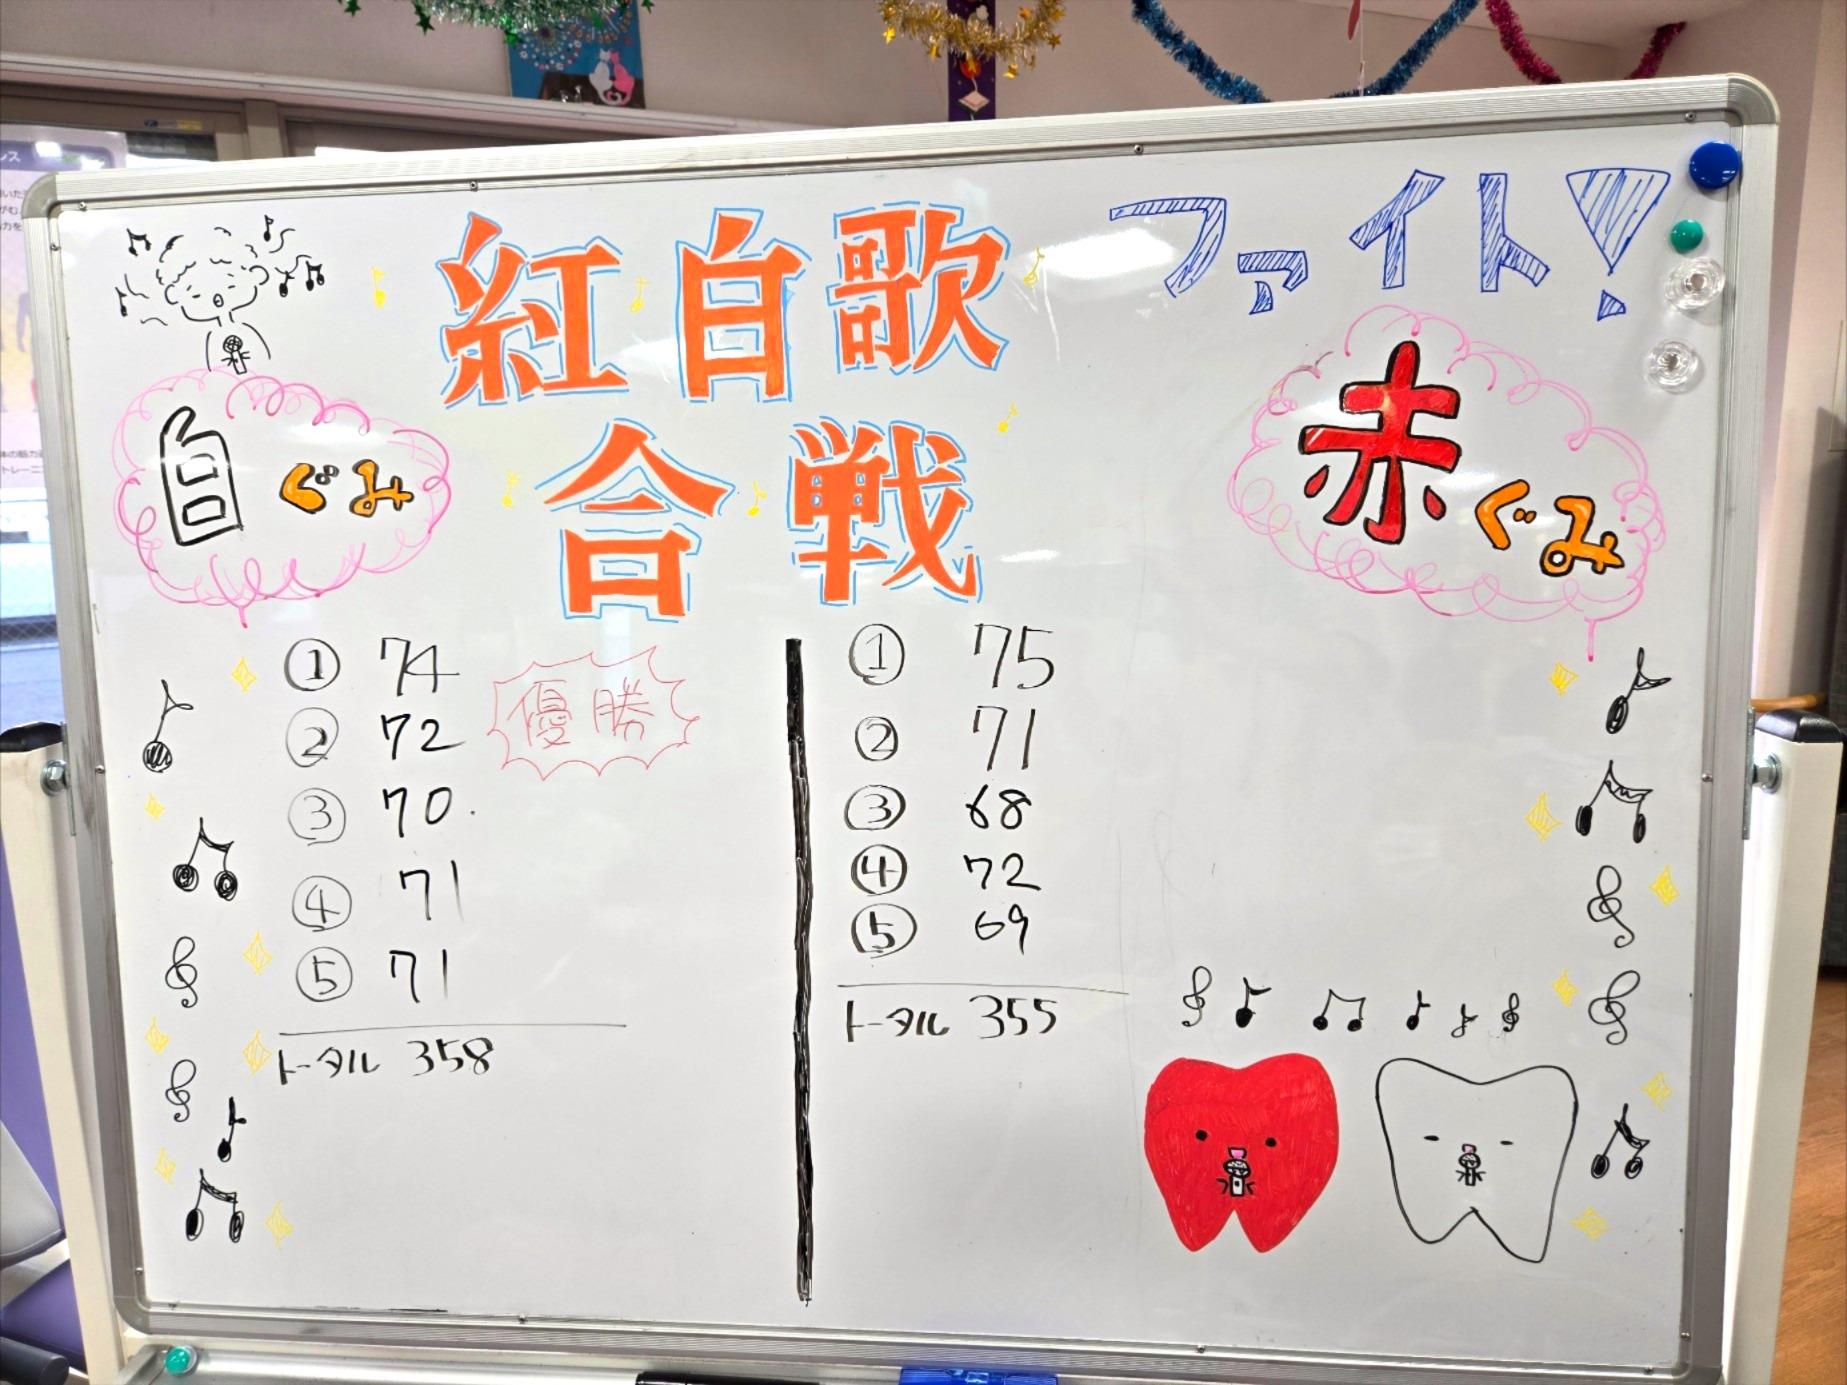 紅白歌
合戦
ファイト!
白ぐみ
赤ぐみ
① 74
② 72
③ 70.
④ 71
⑤ 71
トータル 358
優勝
① 75
② 71
③ 68
④ 72
⑤ 69
トータル 355